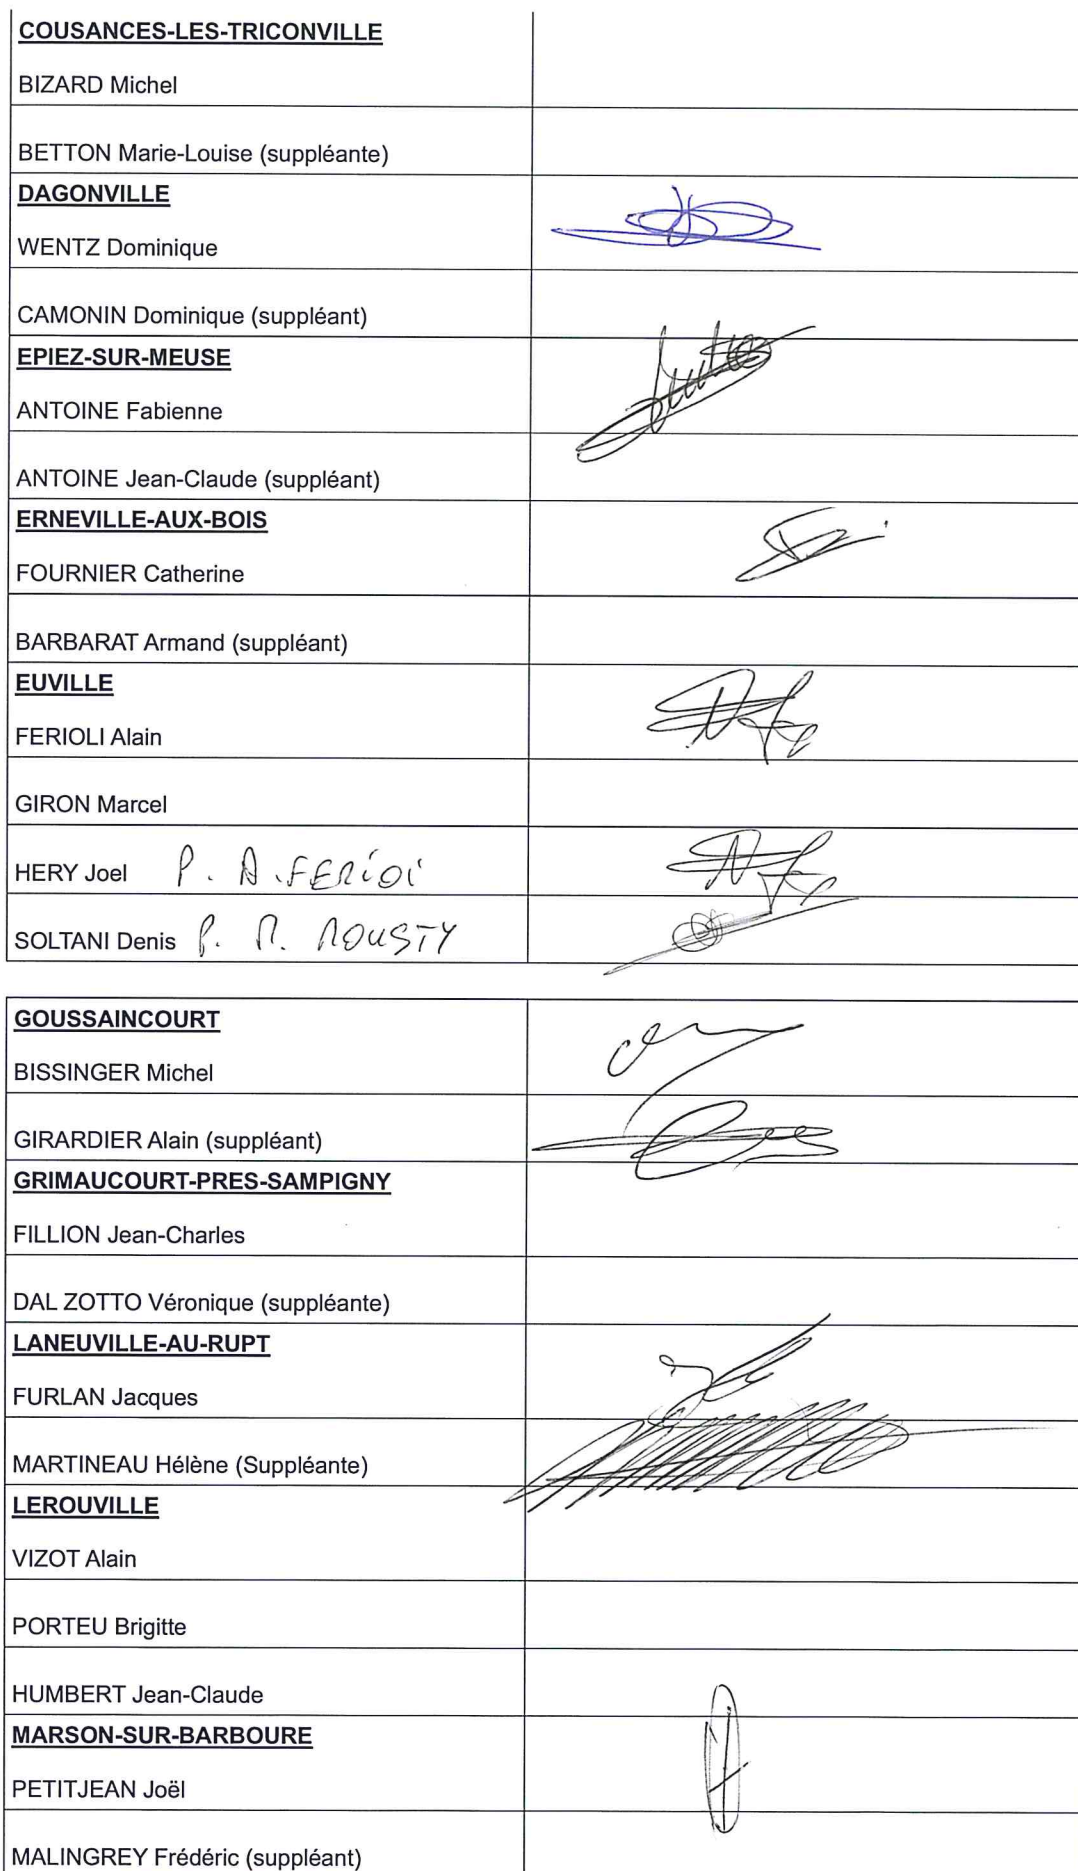 COUSANCES-LES-TRICONVILLE
BIZARD Michel
BETTON Marie-Louise (suppléante)
DAGONVILLE
WENTZ Dominique
CAMONIN Dominique (suppléant)
EPIEZ-SUR-MEUSE
ANTOINE Fabienne
ANTOINE Jean-Claude (suppléant)
ERNEVILLE-AUX-BOIS
FOURNIER Catherine
BARBARAT Armand (suppléant)
EUVILLE
FERIOLI Alain
GIRON Marcel
HERY Joel P. A. FERIOLI
SOLTANI Denis P.
GOUSSAINCOURT
BISSINGER Michel
GIRARDIER Alain (suppléant)
GRIMAUCOURT-PRES-SAMPIGNY
FILLION Jean-Charles
DAL ZOTTO Véronique (suppléante)
LANEUVILLE-AU-RUPT
FURLAN Jacques
MARTINEAU Hélène (Suppléante)
LEROUVILLE
VIZOT Alain
PORTEU Brigitte
HUMBERT Jean-Claude
MARSON-SUR-BARBOURE
PETITJEAN Joël
MALINGREY Frédéric (suppléant)